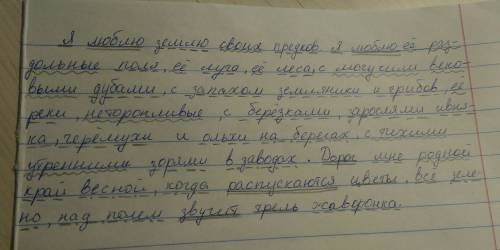 Я люблю землю своих предков. Я люблю её раз-
дольные поля, её луга, её леса, с могучими веко-
выми дубами, с запахом земляники и грибов, её
реки, неторопливые, с берёзками, зарослями ивня-
ка, черёмухи и ольхи на берегах с тихими
утренними зорями в заводах. Дорог мне родной
край весной, когда распускаются цветы, всё зеле-
но, над полем звучит трель жаворонка.